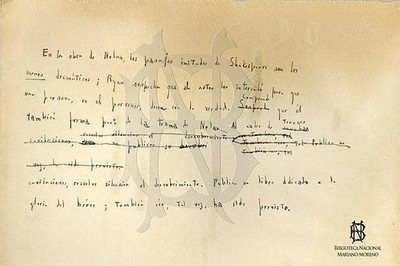 En la obra de Nolan, los pasajes imitados de Shakespeare son los
menos dramáticos; Ryan sospecha que el autor los intercaló para que
Comprende
una persona, en el porvenir, diera con la verdad. Sospecha que él
también forma parte de la trama de Nolan. Al cabo de tenaces
silenciar el descubrimiento
cavilaciones, publicar
vez, ha sido previsto
cavilaciones, resuelve silenciar el descubrimiento. Publica un libro dedicado a la
gloria del héroe; también eso, tal vez, ha sido previsto.
BIBLIOTECA NACIONAL
MARIANO MORENO